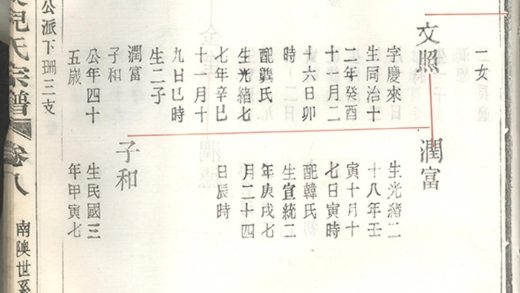 一女
文照
字慶來
生同治十
二年癸酉
十一月二
十六日卯
時
配龔氏
生光緒七
七年辛巳
十一月十
九日巳時
生二子
潤富
子和
公年四十
五歲
潤富
生光緒二
十八年壬
寅十月十
七日寅時
配韓氏
生宣統二
年庚戌七
月二十四
日辰時
子和
生民國三
年甲寅七
公派下珊三支
兒氏宗譜 卷八
世系